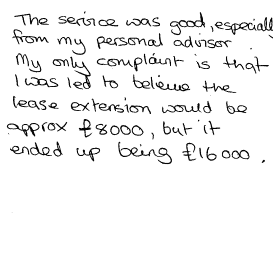 The service was good, especially
from my personal advisor.
My only complaint is that
I was led to believe the
lease extension would be
approx £8000, but it
ended up being £16000.